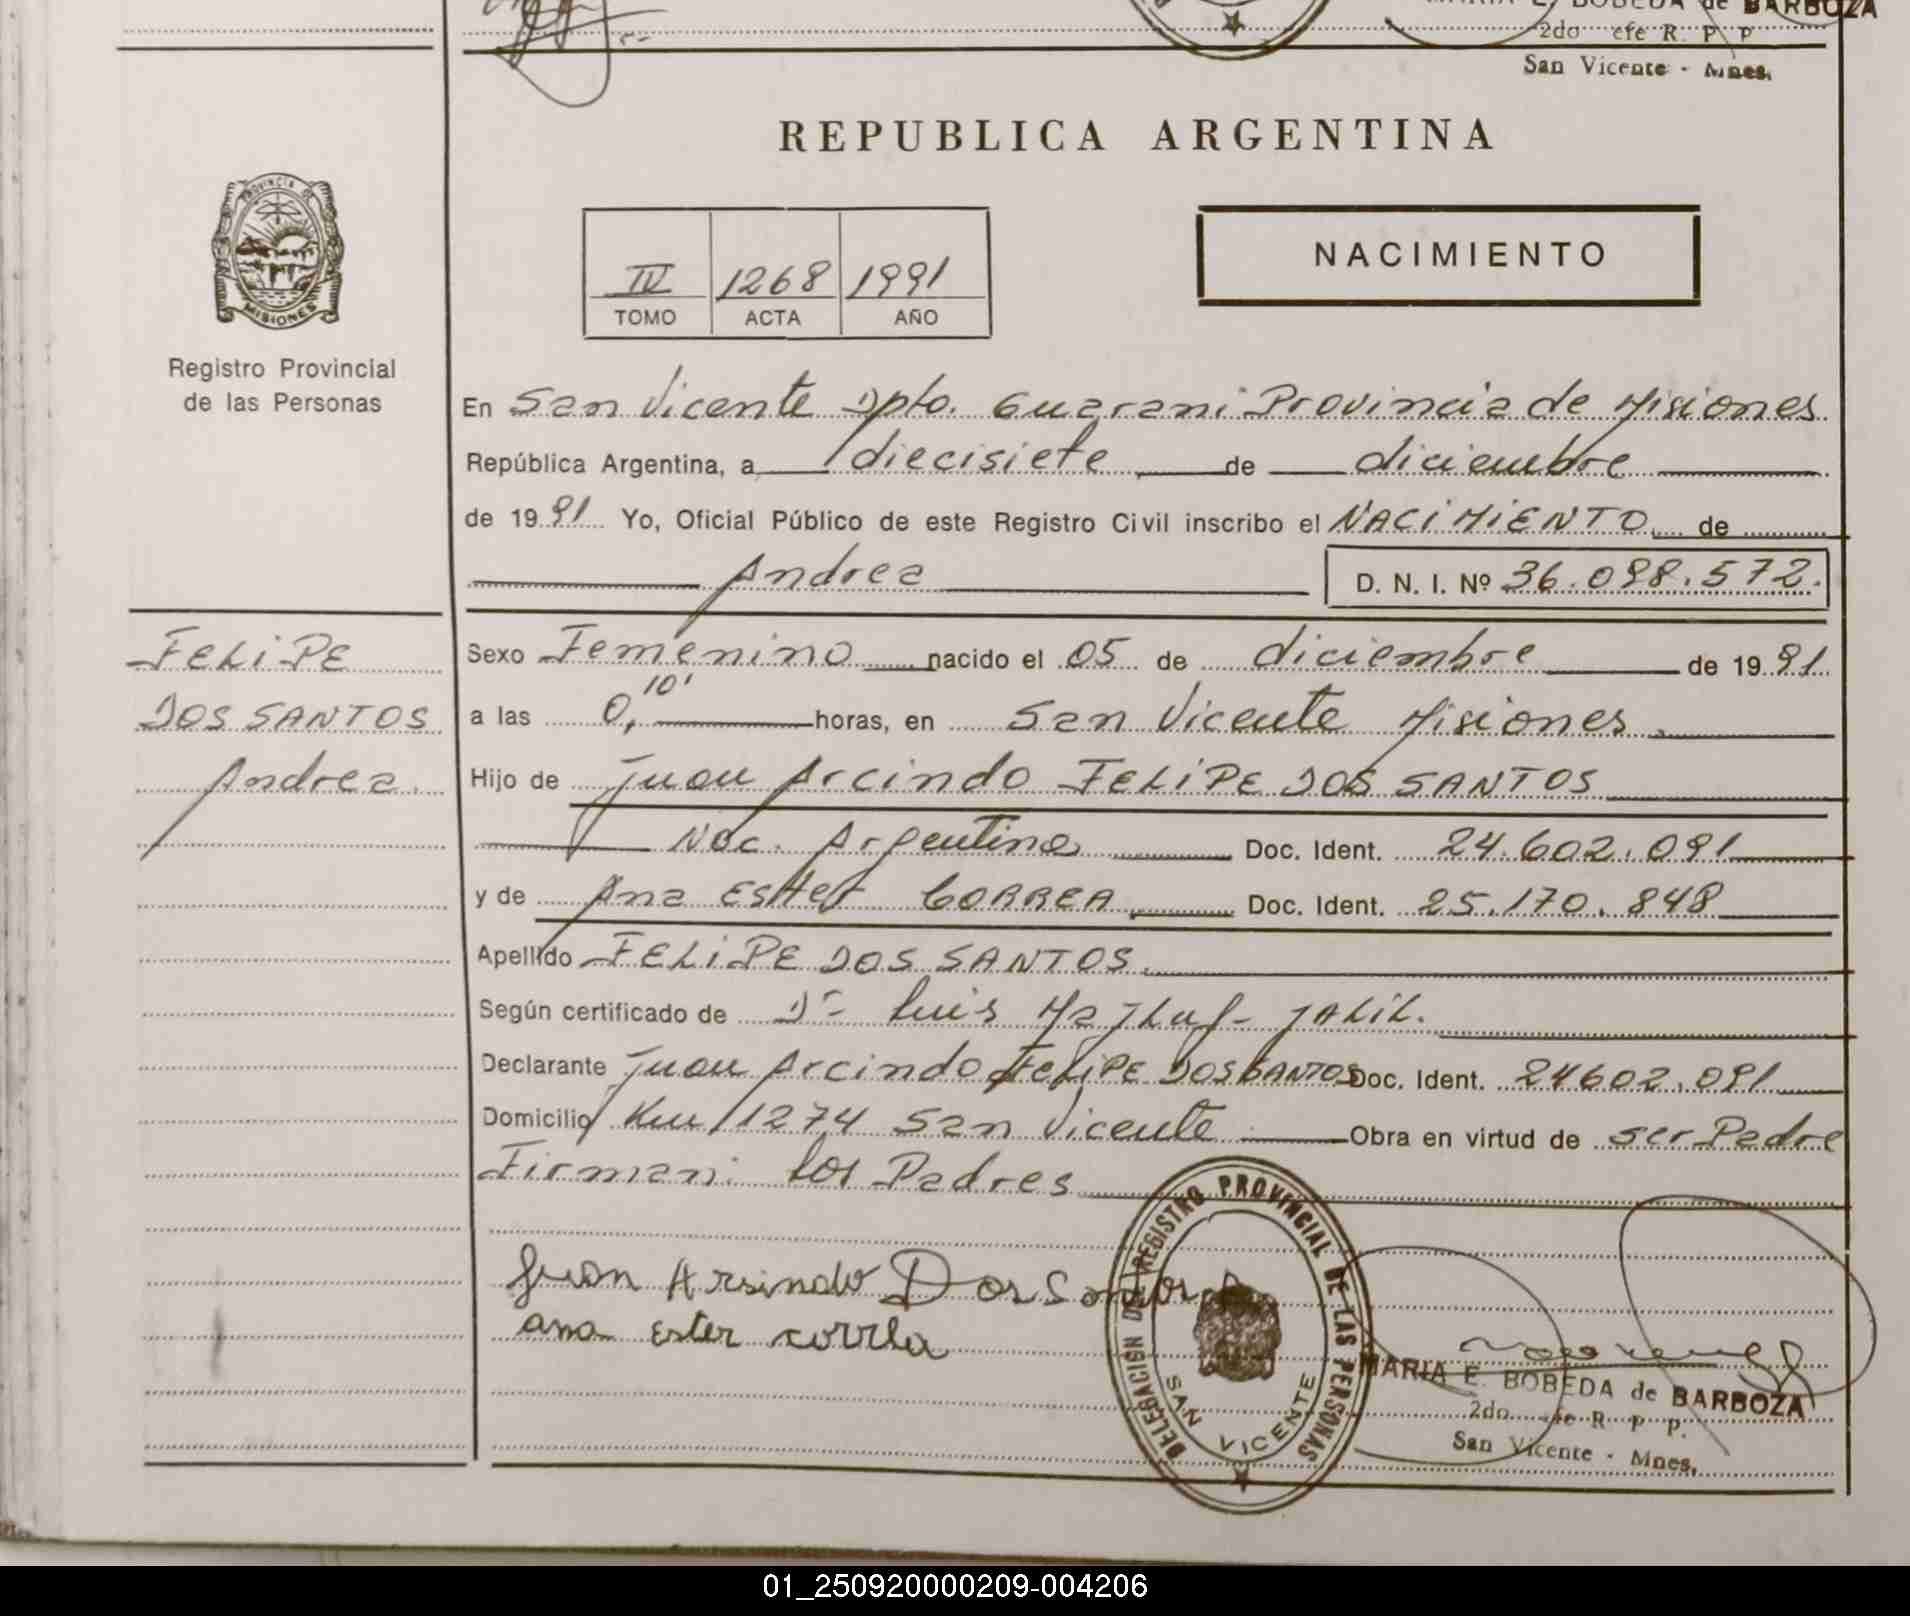 MARIA E. BOBEDA de BARBOZA
2do efe R. P P
San Vicente - Mnes.
REPUBLICA ARGENTINA
PROVINCIA DE
MISIONES
Registro Provincial
de las Personas
IV 1268 1991
TOMO ACTA AÑO
NACIMIENTO
En San Vicente Dpto. Guarani Provincia de Misiones
República Argentina, a diecisiete de diciembre
de 1991 Yo, Oficial Público de este Registro Civil inscribo el NACIMIENTO de
Andrea D. N. I. Nº 36.098.572.
FELIPE
DOS SANTOS
Andrea.
Sexo Femenino nacido el 05 de diciembre de 1991
a las 0,10' horas, en San Vicente Misiones
Hijo de Juan Arcindo FELIPE DOS SANTOS
Nac. Argentina Doc. Ident. 24.602.091
y de Ana Esther CORREA Doc. Ident. 25.170.848
Apellido FELIPE DOS SANTOS
Según certificado de Dr Luis JALIL.
Declarante Juan Arcindo FELIPE DOS SANTOS Doc. Ident. 24602.091
Domicilio Km 1274 San Vicente Obra en virtud de ser Padre
Firman: los Padres
Juan Arsindo Dos Santos
ana ester correa
DELEGACION DEL REGISTRO PROVINCIAL DE LAS PERSONAS
SAN VICENTE
MARIA E. BOBEDA de BARBOZA
2do efe R P P.
San Vicente - Mnes.
01_250920000209-004206